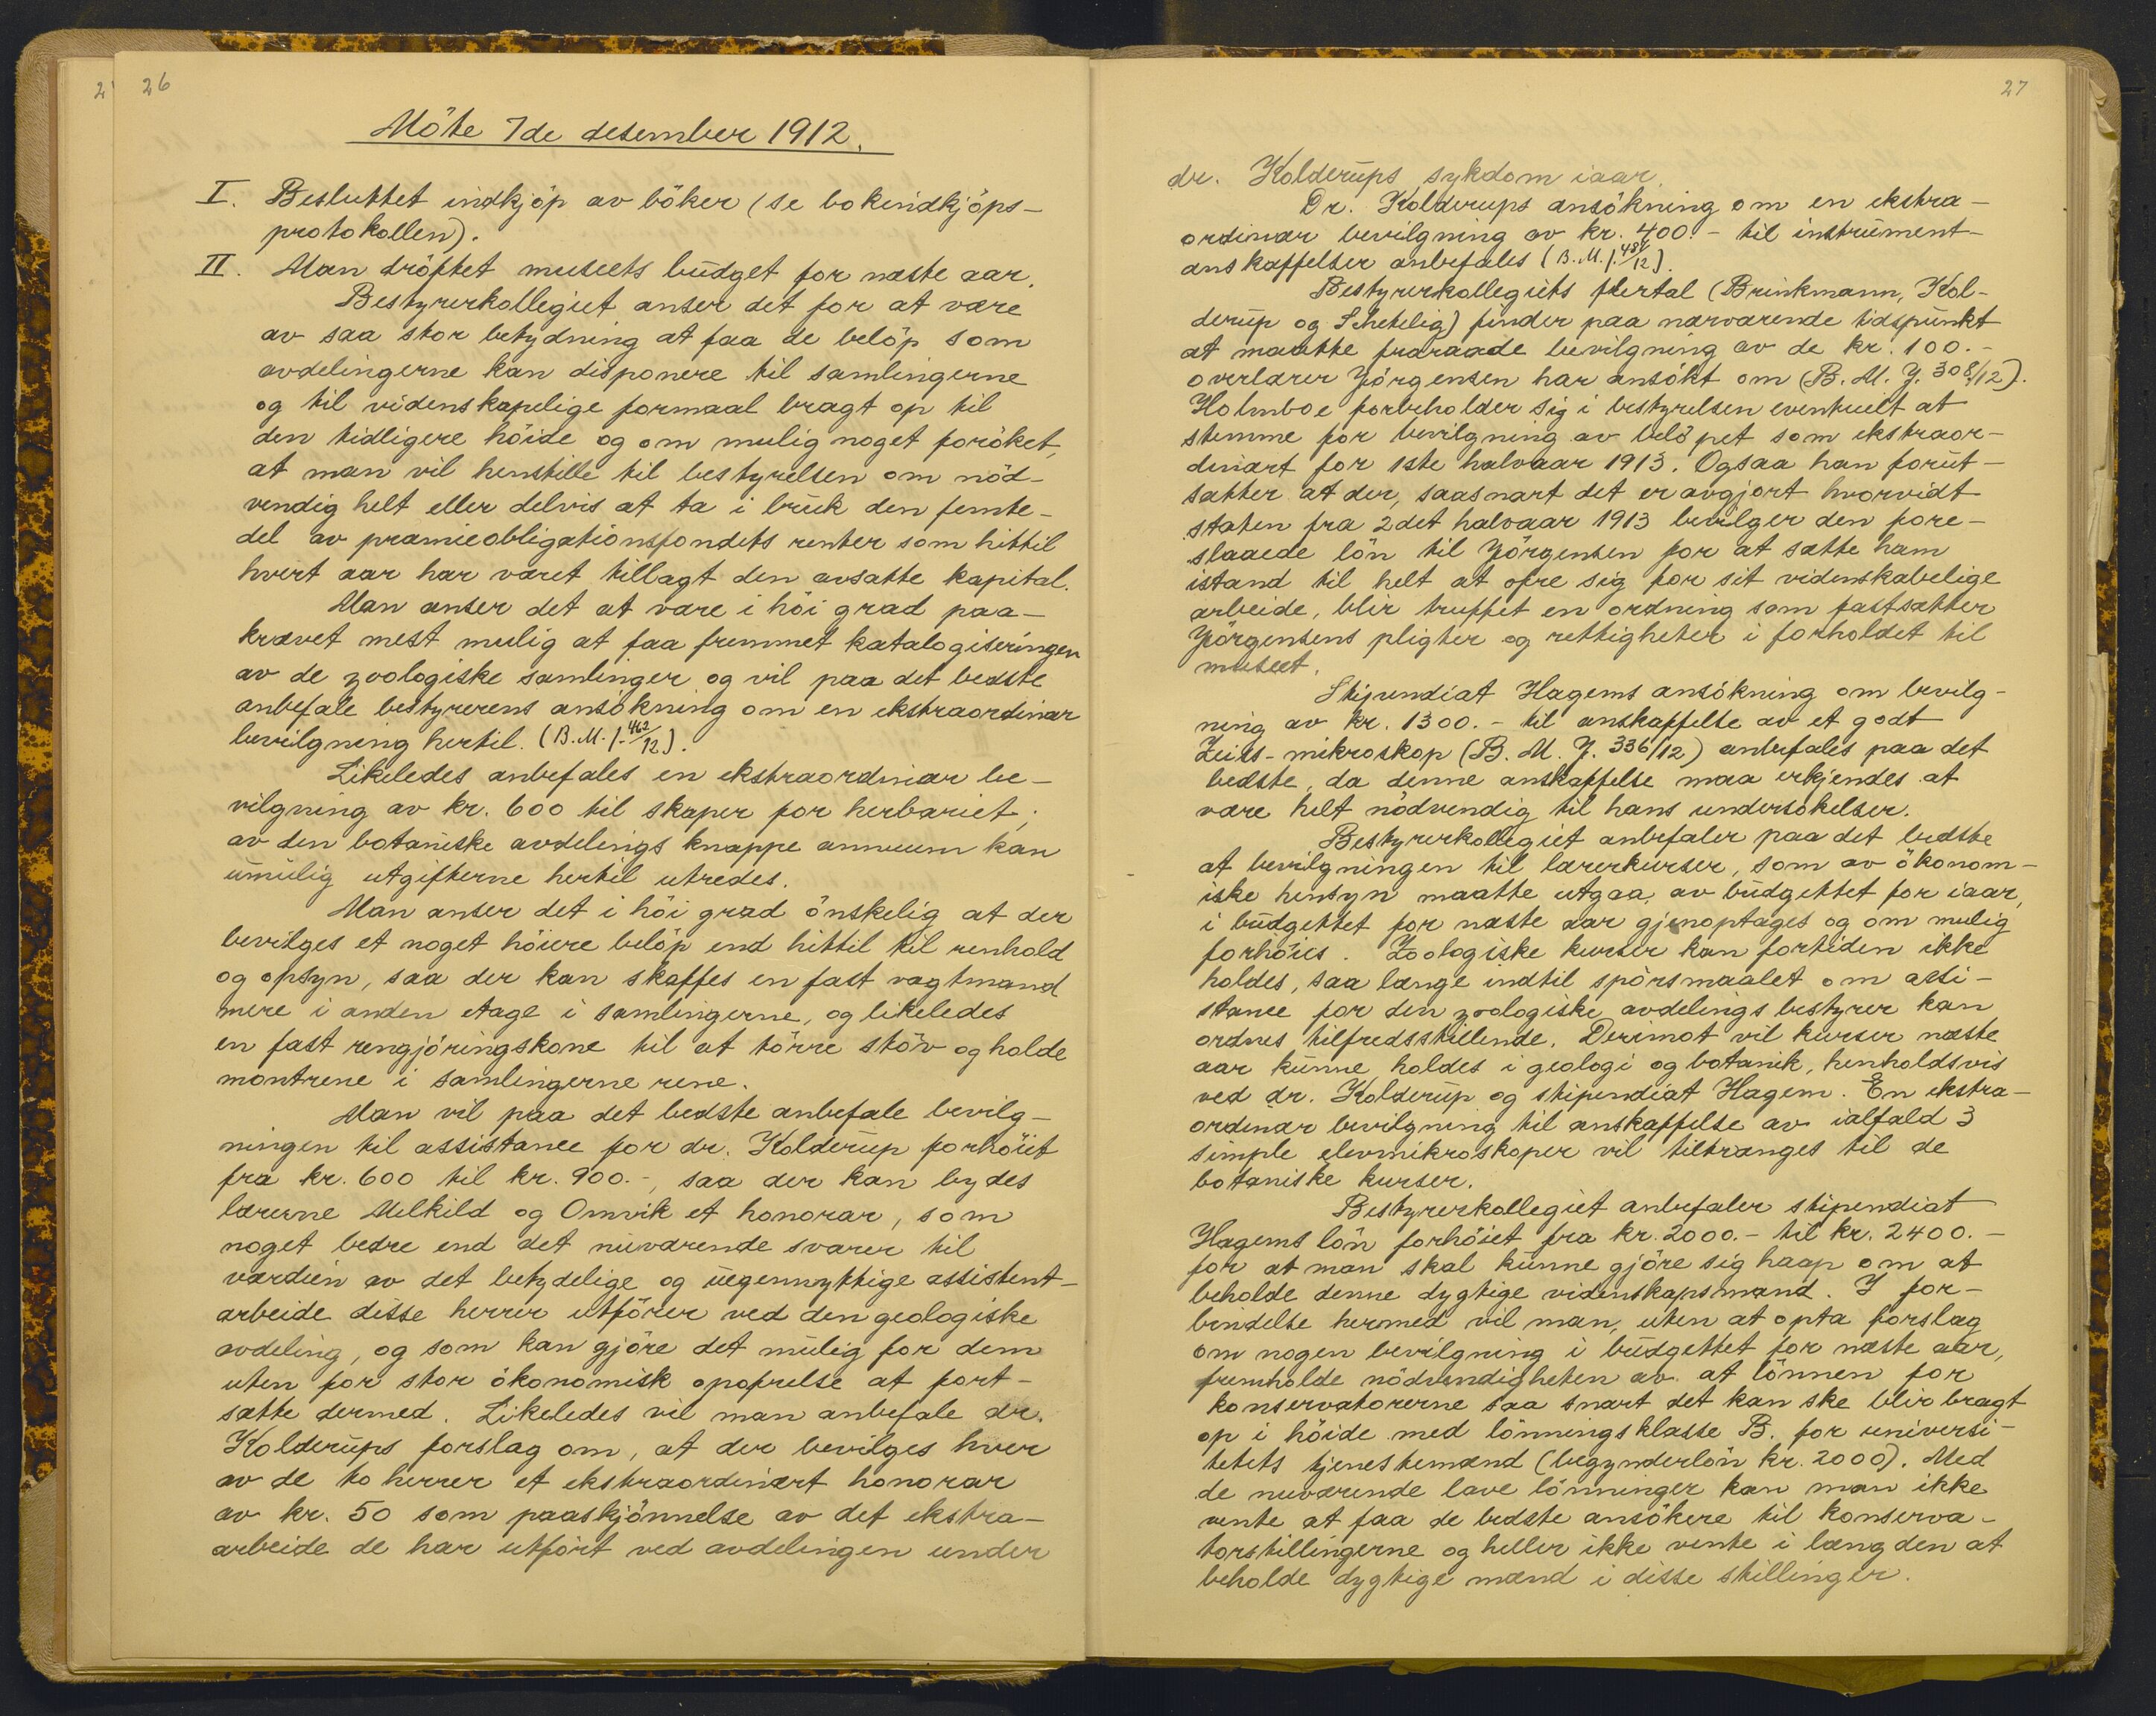 26
Möte 7de desember 1912.
I. Besluttet indkjöp av böker (se bokindkjöps-
protokollen).
II. Man dröftet museets budget for næste aar.
Bestyrerkollegiet anser det for at være
av saa stor betydning at faa de belöp som
avdelingerne kan disponere til samlingerne
og til videnskapelige formaal bragt op til
den tidligere höide og om mulig noget foröket,
at man vil henstille til bestyrelsen om nöd-
vendig helt eller delvis at ta i bruk den femte-
del av præmieobligationsfondets renter som hittil
hvert aar har været tillagt den avsatte kapital.
Man anser det at være i höi grad paa-
krævet mest mulig at faa fremmet katalogiseringen
av de zoologiske samlinger og vil paa det bedste
anbefale bestyrerens ansökning om en ekstraordinær
bevilgning hertil. (B.M. J. 462/12).
Likeledes anbefales en ekstraordinær be-
vilgning av kr. 600 til skaper for herbariet;
av den botaniske avdelings knappe annuum kan
umulig utgifterne hertil utredes.
Man anser det i höi grad önskelig at der
bevilges et noget höiere belöp end hittil til renhold
og opsyn, saa der kan skaffes en fast vagtmand
mere i anden etage i samlingerne, og likeledes
en fast rengjöringskone til at törre stöv og holde
montrene i samlingerne rene.
Man vil paa det bedste anbefale bevilg-
ningen til assistance for dr. Kolderup forhöiet
fra kr. 600 til kr. 900.-, saa der kan bydes
lærerne Melkild og Omvik et honorar, som
noget bedre end det nuværende svarer til
værdien av det betydelige og uegennyttige assistent-
arbeide disse herrer utförer ved den geologiske
avdeling, og som kan gjöre det mulig for dem
uten for stor ökonomisk opofrelse at fort-
sætte dermed. Likeledes vil man anbefale dr.
Kolderups forslag om, at der bevilges hver
av de to herrer et ekstraordinært honorar
av kr. 50 som paaskjönnelse av det ekstra-
arbeide de har utfört ved avdelingen under
27
dr. Kolderups sykdom iaar.
Dr. Kolderups ansökning om en ekstra-
ordinær bevilgning av kr. 400.- til instrument-
anskaffelser anbefales (B.M. J. /12).
Bestyrerkollegiets flertal (Brinkmann, Kol-
derup og Schetelig) finder paa nærværende tidspunkt
at maatte fraraade bevilgning av de kr. 100.-
overlærer Jörgensen har ansökt om (B. M. J. 308/12).
Holmboe forbeholder sig i bestyrelsen eventuelt at
stemme for bevilgning av belöpet som ekstraor-
dinært for 1ste halvaar 1913. Ogsaa han forut-
sætter at der, saasnart det er avgjort hvorvidt
staten fra 2det halvaar 1913 bevilger den fore-
slaaede lön til Jörgensen for at sætte ham
istand til helt at ofre sig for sit videnskabelige
arbeide, blir truffet en ordning som fastsætter
Jörgensens pligter og rettigheter i forholdet til
museet.
Stipendiat Hagems ansökning om bevilg-
ning av kr. 1300.- til anskaffelse av et godt
Zeiss-mikroskop (B. M. J. 336/12) anbefales paa det
bedste, da denne anskaffelse maa erkjendes at
være helt nödvendig til hans undersökelser.
Bestyrerkollegiet anbefaler paa det bedste
at bevilgningen til lærerkurser, som av ökonom-
iske hensyn maatte utgaa av budgettet for iaar,
i budgettet for næste aar gjenoptages og om mulig
forhöies. Zoologiske kurser kan fortiden ikke
holdes, saa længe indtil spörsmaalet om assi-
stance for den zoologiske avdelings bestyrer kan
ordnes tilfredsstillende. Derimot vil kurser næste
aar kunne holdes i geologi og botanik, henholdsvis
ved dr. Kolderup og stipendiat Hagem. En ekstra-
ordinær bevilgning til anskaffelse av ialfald 3
simple elevmikroskoper vil tiltrænges til de
botaniske kurser.
Bestyrerkollegiet anbefaler stipendiat
Hagems lön forhöiet fra kr. 2000.- til kr. 2400.-
for at man skal kunne gjöre sig haap om at
beholde denne dygtige videnskapsmand. I for-
bindelse hermed vil man, uten at opta forslag
om nogen bevilgning i budgettet for næste aar,
fremholde nödvendigheten av at lönnen for
konservatorerne saa snart det kan ske blir bragt
op i höide med lönningsklasse B. for universi-
tetets tjenestemænd (begynderlön kr. 2000). Med
de nuværende lave lönninger kan man ikke
vente at faa de bedste ansökere til konserva-
torstillingerne og heller ikke vente i længden at
beholde dygtige mænd i disse stillinger.